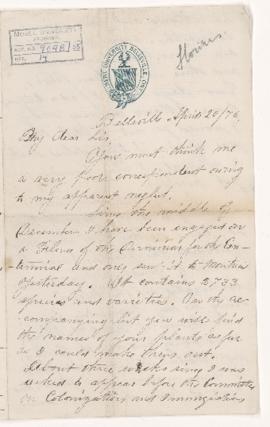 McGILL UNIVERSITY
ACC. NO. 2098/25
REF. 14
ALBERT UNIVERSITY, BELLEVILLE, ONT.
Flowers
Belleville April 20/76
My dear Sir
You must think me
a very poor correspondent owing
to my apparent neglect.
Since the middle of
December I have been engaged on
a Flora of the Dominion for the Cen-
tennial and only sent it to Montreal
yesterday. It contains 2733
species and varieties. On the ac-
companying list you will find
the names of your plants as far
as I could make them out.
About three weeks since I was
asked to appear before the Committee
on Colonization and Immigration